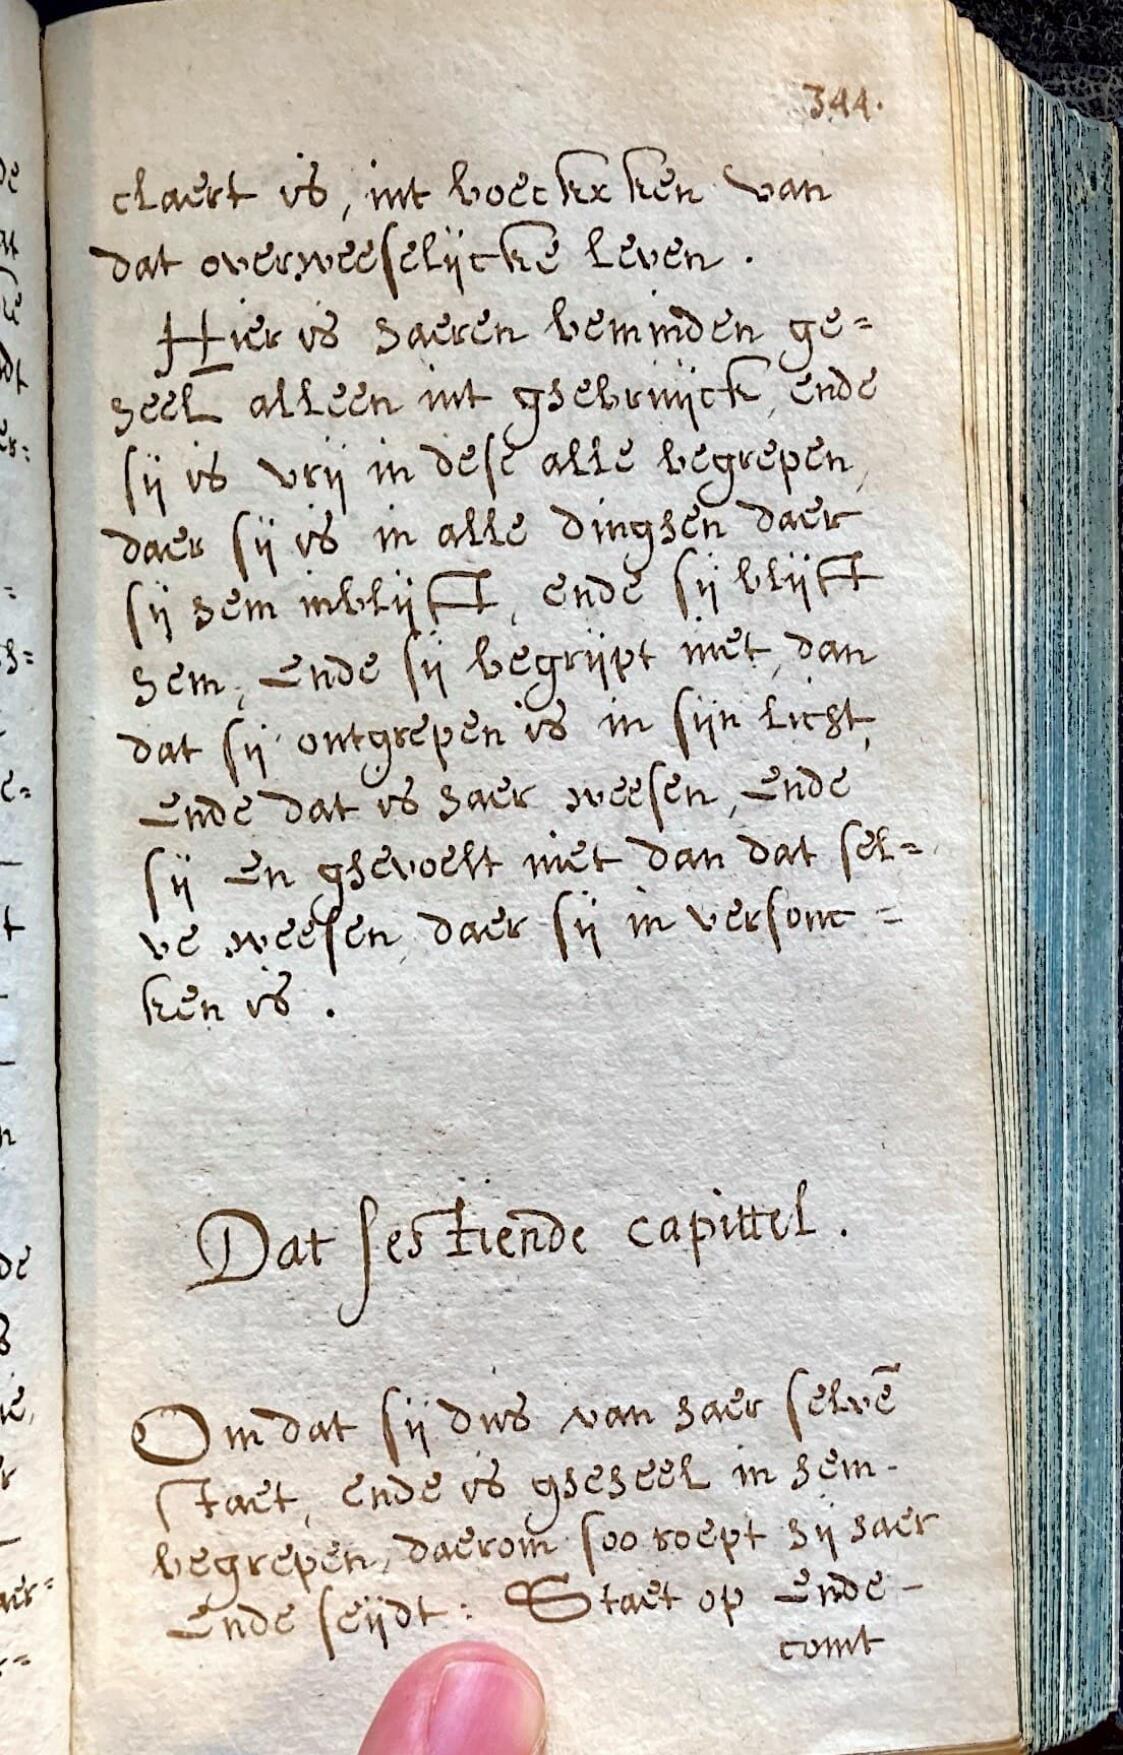 344.
claert is, int boeckxken van
dat overweeselijcke leven.
Hier is haeren beminden ge=
heel alleen int ghebruijck, ende
sij is vrij in dese alle begrepen,
daer sij is in alle dinghen daer
sij hem inblijft, ende sij blijft
hem, ende sij begrijpt niet, dan
dat sij ontgrepen is in sijn licht,
ende dat is haer weesen, ende
sij en ghevoelt niet dan dat sel=
ve weesen, daer sij in versonc=
ken is.
Dat sestiende capittel.
Omdat sij dus van haer selvē
staet, ende is gheheel in hem-
begrepen, daerom soo roept hij haer
ende seijdt: Staet op ende-
comt